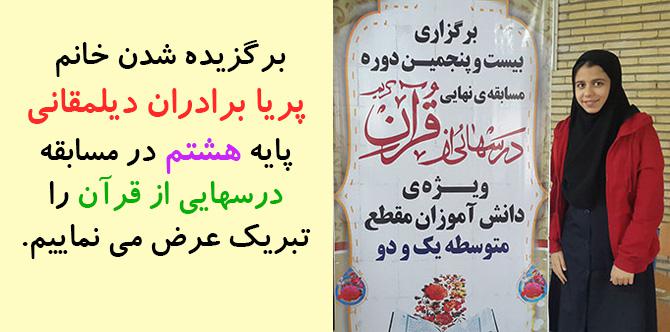 برگزیده شدن خانم
پریا برادران دیلمقانی
پایه هشتم در مسابقه
درسهایی از قرآن را
تبریک عرض می نماییم.
برگزاری
بیست و پنجمین دوره
مسابقه‌ی نهایی
درسهائی از قرآن
ویژه‌ی
دانش آموزان مقطع
متوسطه یک و دو